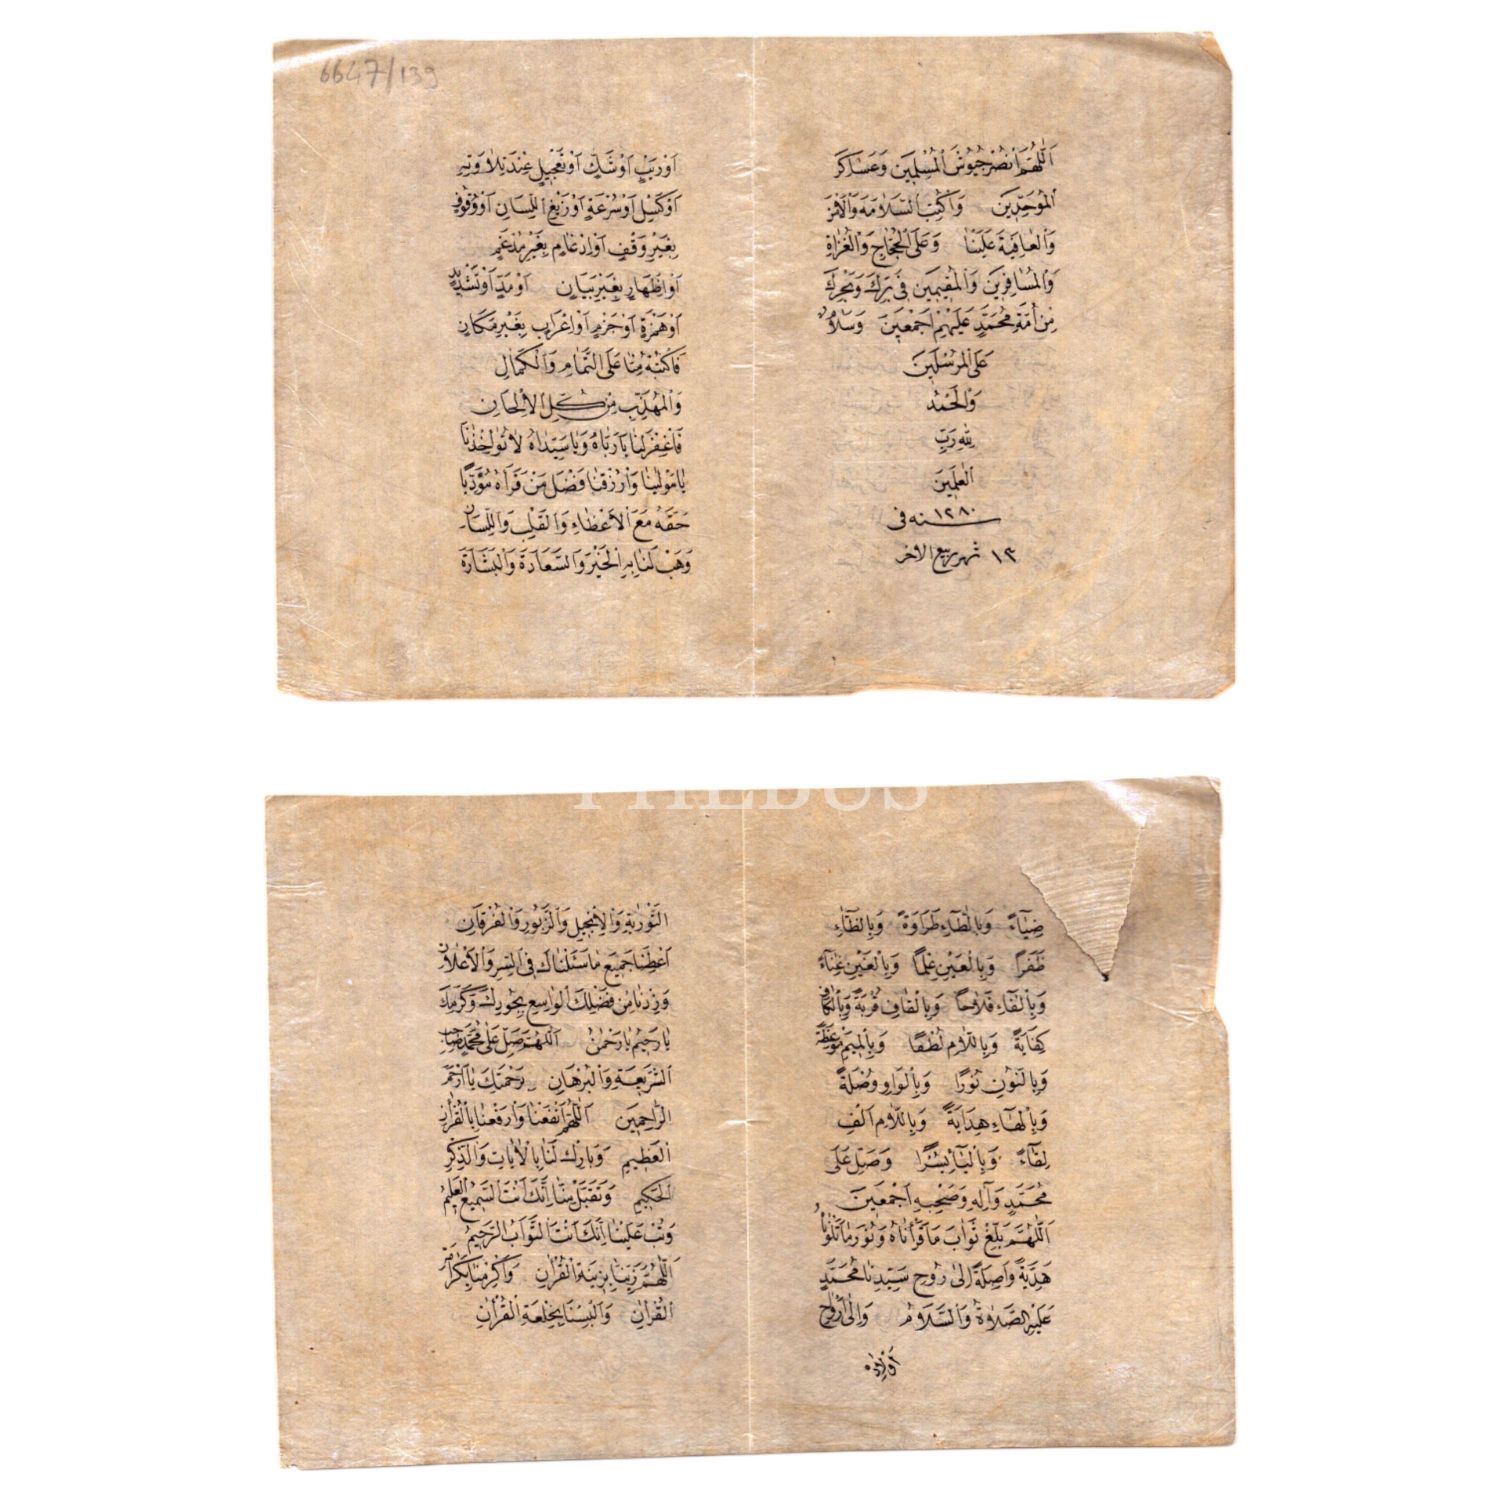 6647/139
اَللّٰهُمَّ اَنْصُرْ جُيُوشَ الْمُسْلِمِينَ وَعَسَاكِرَ
الْمُوَحِّدِينَ وَاكْتُبِ السَّلَامَةَ وَالْاَمْنَ
وَالْعَافِيَةَ عَلَيْنَا وَعَلَى الْحُجَّاجِ وَالْغُزَاةِ
وَالْمُسَافِرِينَ وَالْمُقِيمِينَ فِى بَرِّكَ وَبَحْرِكَ
مِنْ اُمَّةِ مُحَمَّدٍ عَلَيْهِمْ اَجْمَعِينَ وَسَلَامٌ
عَلَى الْمُرْسَلِينَ
وَالْحَمْدُ
لِلّٰهِ رَبِّ
الْعٰلَمِينَ
سنه فى ١٢٨٠
١٣ شهر ربيع الاخر
اَوْ رَيْبٍ اَوْ شَكٍّ اَوْ تَعْجِيلٍ عِنْدَ تِلَاوَتِهِ
اَوْ كَسَلٍ اَوْ سُرْعَةٍ اَوْ زَيْغِ اللِّسَانِ اَوْ وُقُوفٍ
بِغَيْرِ وَقْفٍ اَوْ اِدْغَامٍ بِغَيْرِ مُدْغَمٍ
اَوْ اِظْهَارٍ بِغَيْرِ بَيَانٍ اَوْ مَدٍّ اَوْ تَشْدِيدٍ
اَوْ هَمْزَةٍ اَوْ جَزْمٍ اَوْ اِعْرَابٍ بِغَيْرِ مَكَانٍ
فَاكْتُبْهُ مِنَّا عَلَى التَّمَامِ وَالْكَمَالِ
وَالْمُهَذَّبِ مِنْ كُلِّ الْاَلْحَانِ
فَاغْفِرْ لَنَا يَا رَبَّاهُ وَيَا سَيِّدَاهُ لَا تُؤَاخِذْنَا
يَا مَوْلٰينَا وَارْزُقْنَا فَضْلَ مَنْ قَرَاَهُ مُؤَدِّيًا
حَقَّهُ مَعَ الْاَعْضَاءِ وَالْقَلْبِ وَاللِّسَانِ
وَهَبْ لَنَا بِهِ الْخَيْرَ وَالسَّعَادَةَ وَالْبَشَارَةَ
PHEBUS
ضِيَاءً وَبِالطَّاءِ طَرَاوَةً وَبِالظَّاءِ
ظَفَرًا وَبِالْعَيْنِ عِلْمًا وَبِالْغَيْنِ غِنَاءً
وَبِالْفَاءِ فَلَاحًا وَبِالْقَافِ قُرْبَةً وَبِالْكَافِ
كِفَايَةً وَبِاللَّامِ لُطْفًا وَبِالْمِيمِ مَوْعِظَةً
وَبِالنُّونِ نُورًا وَبِالْوَاوِ وُصْلَةً
وَبِالْهَاءِ هِدَايَةً وَبِاللَّامِ اَلِفِ
لِقَاءً وَبِالْيَاءِ يُسْرًا وَصَلِّ عَلَى
مُحَمَّدٍ وَآلِهِ وَصَحْبِهِ اَجْمَعِينَ
اَللّٰهُمَّ بَلِّغْ ثَوَابَ مَا قَرَاْنَاهُ وَنُورَ مَا تَلَوْنَاهُ
هَدِيَّةً وَاصِلَةً اِلٰى رُوحِ سَيِّدِنَا مُحَمَّدٍ
عَلَيْهِ الصَّلَاةُ وَالسَّلَامُ وَاِلٰى اَرْوَاحِ
اَوْلَادِهِ
التَّوْرٰيةِ وَالْاِنْجِيلِ وَالزَّبُورِ وَالْفُرْقَانِ
اَعْطِنَا جَمِيعَ مَا سَئَلْنَاكَ فِى السِّرِّ وَالْاَعْلَانِ
وَزِدْنَا مِنْ فَضْلِكَ الْوَاسِعِ بِجُودِكَ وَكَرَمِكَ
يَا رَحِيمُ يَا رَحْمٰنُ اَللّٰهُمَّ صَلِّ عَلٰى مُحَمَّدٍ صَاحِبِ
الشَّرِيعَةِ وَالْبُرْهَانِ بِرَحْمَتِكَ يَا اَرْحَمَ
الرَّاحِمِينَ اَللّٰهُمَّ انْفَعْنَا وَارْفَعْنَا بِالْقُرْاٰنِ
الْعَظِيمِ وَبَارِكْ لَنَا بِالْاٰيَاتِ وَالذِّكْرِ
الْحَكِيمِ وَتَقَبَّلْ مِنَّا اِنَّكَ اَنْتَ السَّمِيعُ الْعَلِيمُ
وَتُبْ عَلَيْنَا اِنَّكَ اَنْتَ التَّوَّابُ الرَّحِيمُ
اَللّٰهُمَّ زَيِّنَّا بِزِينَةِ الْقُرْاٰنِ وَاَكْرِمْنَا بِكَرَامَةِ
الْقُرْاٰنِ وَاَلْبِسْنَا بِخِلْعَةِ الْقُرْاٰنِ